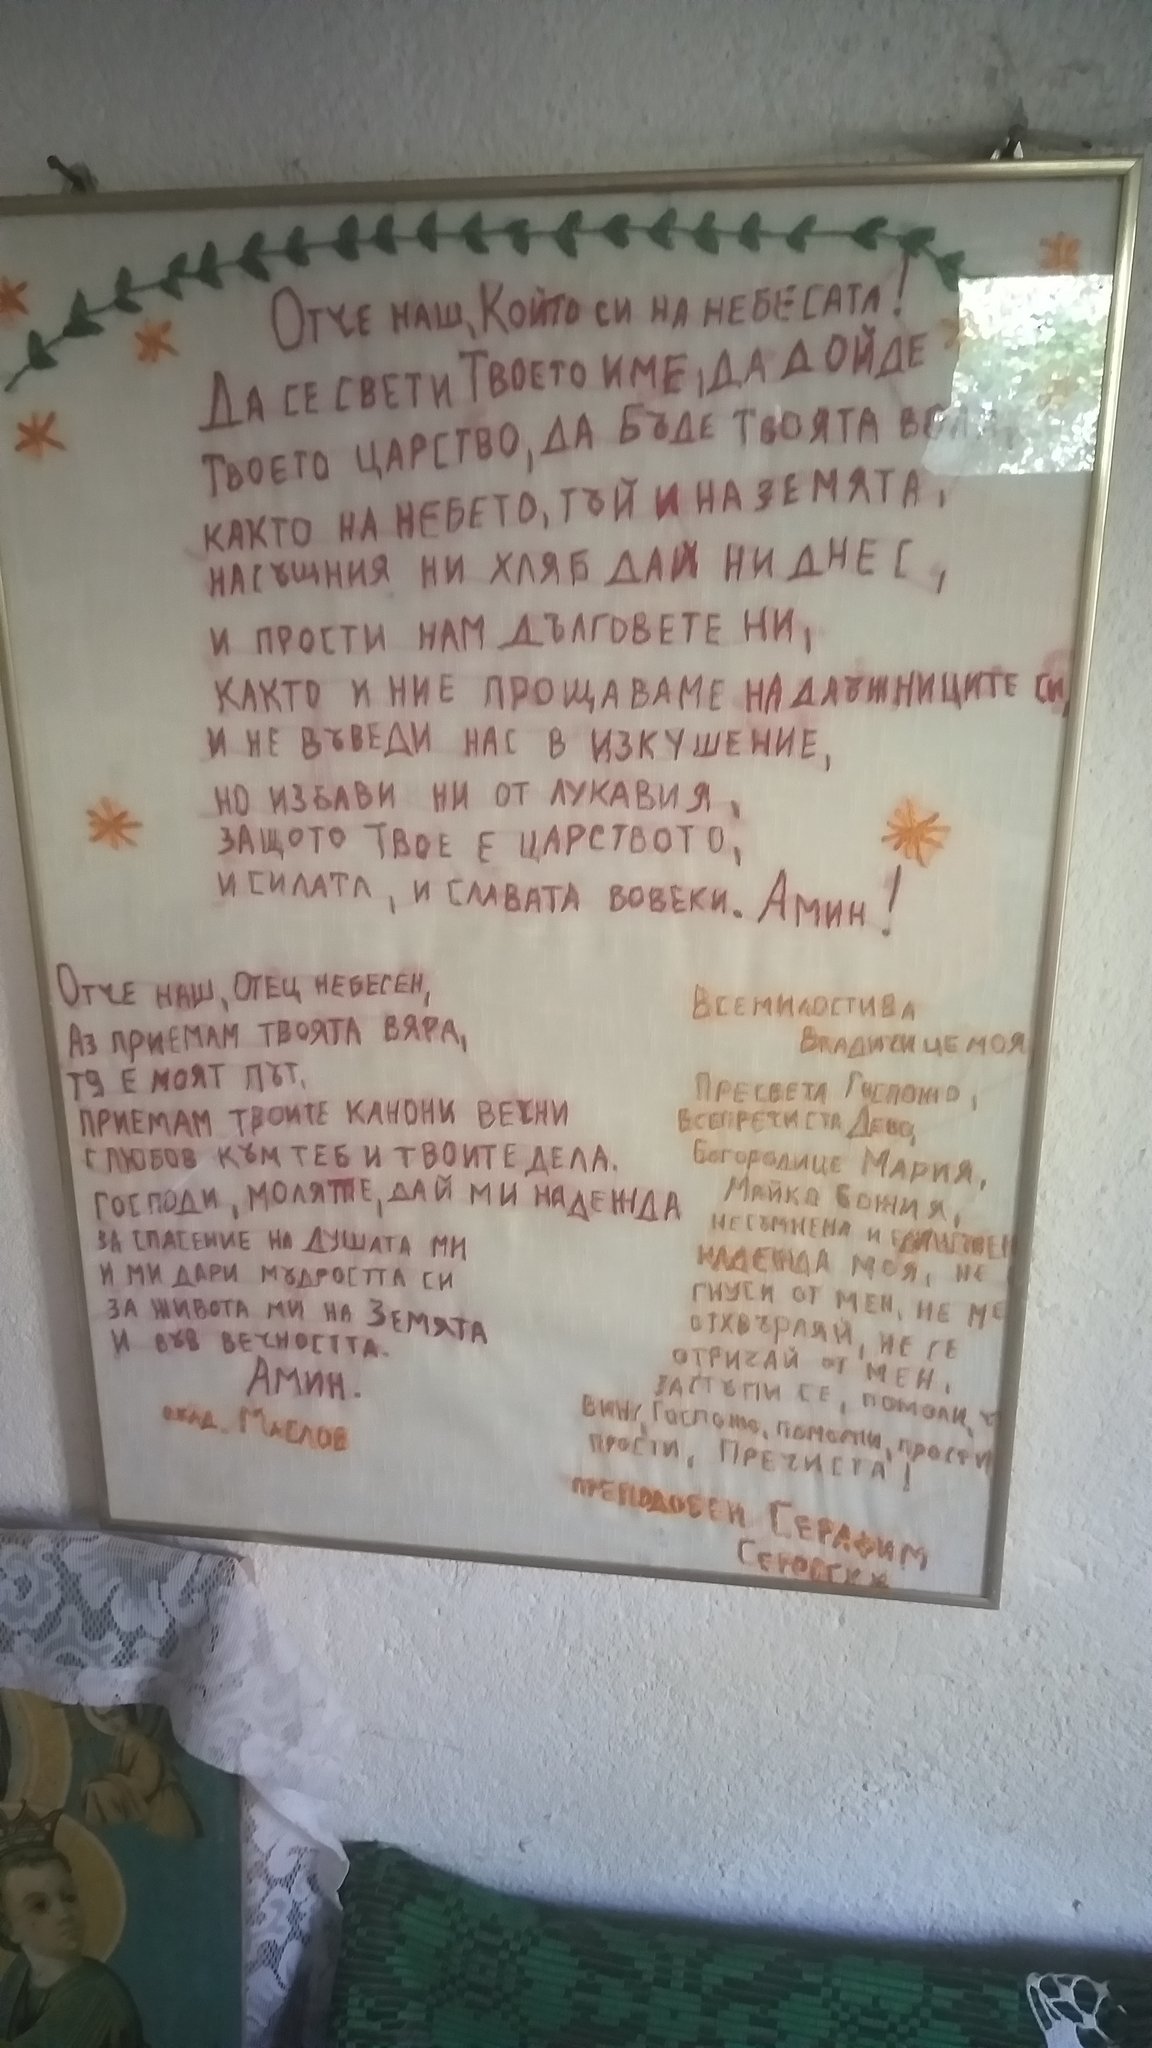 Отче наш, Който си на небесата!
Да се свети Твоето име, да дойде
твоето царство, да бъде твоята воля,
както на небето, тъй и на земята,
насъщния ни хляб дай ни днес,
и прости нам дълговете ни,
както и ние прощаваме на длъжниците си,
и не въведи нас в изкушение,
но избави ни от лукавия,
защото твое е царството,
и силата, и славата вовеки. Амин!
Отче наш, Отец небесен,
Аз приемам твоята вяра,
тя е моят път.
приемам твоите канони вечни
с любов към теб и твоите дела.
Господи, моля те, дай ми надежда
за спасение на душата ми
и ми дари мъдростта си
за живота ми на Земята
и във вечността.
Амин.
акад. Маслов
Всемилостива
Владичице моя
Пресвета Госпожо,
всепречиста Дево,
Богородице Мария,
Майко Божия,
несъмнена и
надежда моя, не
гнуси от мен, не ме
отхвърляй, не се
отричай от мен,
застъпи се, помоли,
Госпожо, помогни, прости
прости, Пречиста!
преподобен Серафим
Серовски